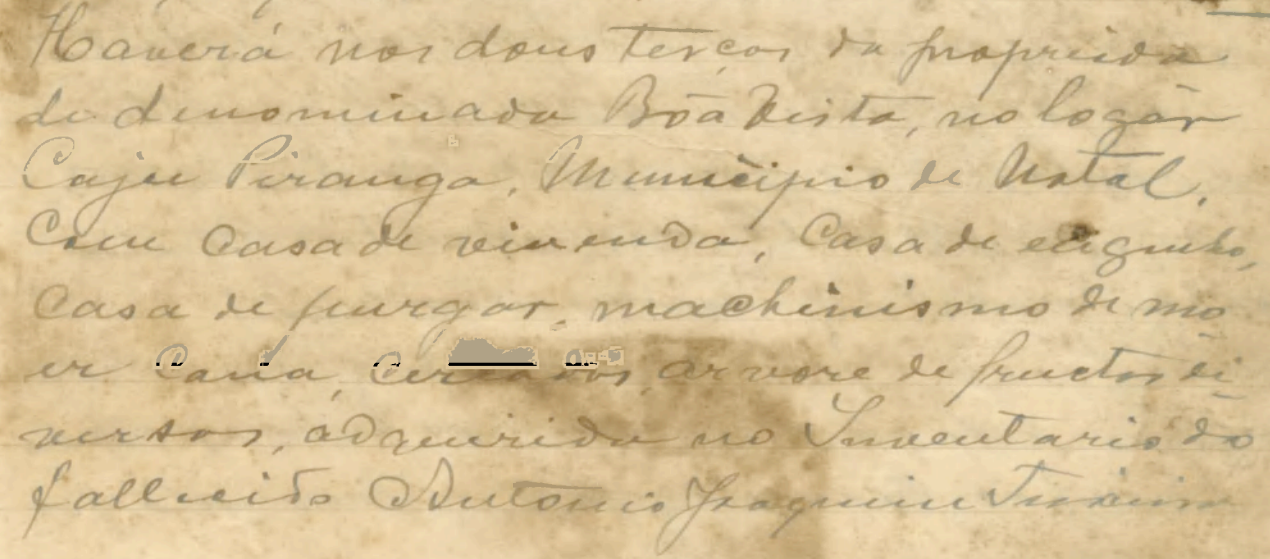 Haverá nos dous terços da proprieda
de denominada Bôa Vista, no logár
Cajú Piranga, Municipio de Natal,
Com Casa de vivenda, Casa de engenho,
Casa de purgar, machinismo de mo
er Cana, Cercados, arvore de fructos di
versos, adquirida no Inventario do
fallecido Antonio Joaquim Teixeira